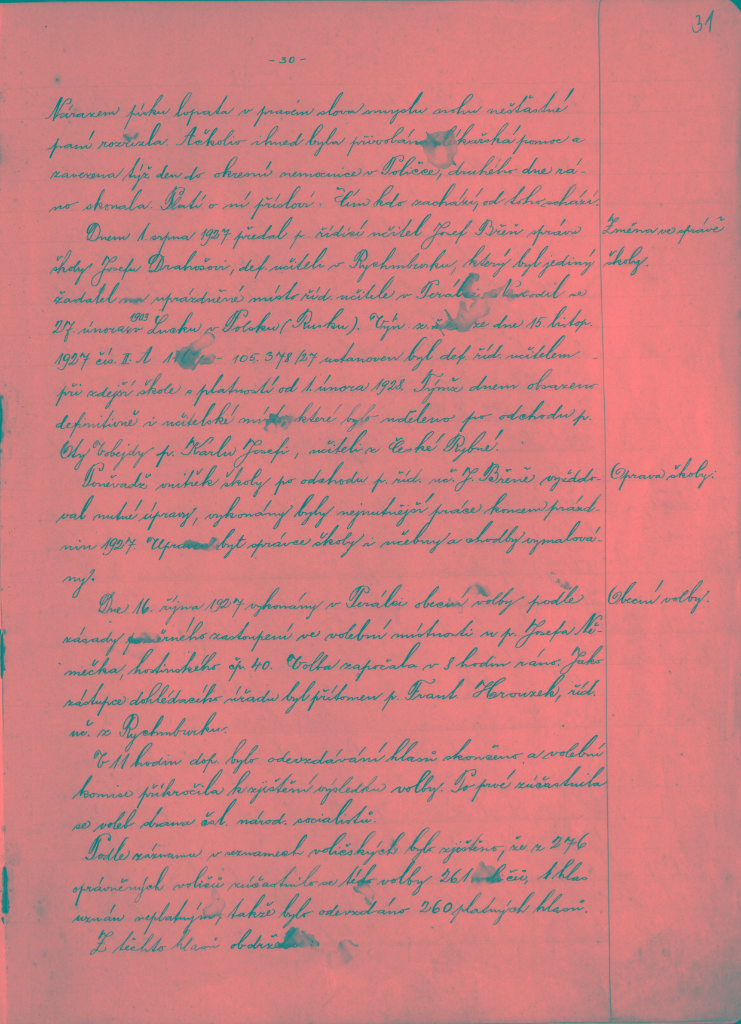 31
- 30 -
Nárazem písku lopata v pravém slova smyslu nohu nešťastné
paní rozřízla. Ačkoliv ihned byla přivolána lékařská pomoc a
zavezena týž den do okresní nemocnice v Poličce, druhého dne rá-
no skonala. Platí o ní přísloví: Čím kdo zachází, od toho schází.
Dnem 1. srpna 1927 předal p. řídící učitel Josef Břeň správu
Změna ve správě
školy Josefu Drahošovi, def. učiteli v Rychmburku, který byl jediný
školy.
žadatel na uprázdněné místo říd. učitele v Perálci. Narodil se
27. února 1903 v Lucku v Polsku (Rusku). Výn. z. š. r. ze dne 15. listop.
1927 čís. II. A 105.378/27 ustanoven byl def. říd. učitelem
při zdejší škole s platností od 1. února 1928. Týmž dnem obsazeno
definitivně i učitelské místo, které bylo uděleno po odchodu p.
Oty Vobejdy p. Karlu Josefi, učiteli z České Rybné.
Poněvadž vnitřek školy po odchodu p. říd. uč. J. Břeně vyžado-
Oprava školy.
val nutné úpravy, vykonány byly nejnutnější práce koncem prázd-
nin 1927. Upraven byt správce školy i učebny a chodby vymalová-
ny.
Dne 16. října 1927 vykonány v Perálci obecní volby podle
Obecní volby.
zásady poměrného zastoupení ve volební místnosti u p. Josefa Ně-
mečka, hostinského čp. 40. Volba započala v 8 hodin ráno. Jako
zástupce dohlédacího úřadu byl přítomen p. Frant. Hrouzek, říd.
uč. z Rychmburku.
V 11 hodin dop. bylo odevzdávání hlasů skončeno a volební
komise přikročila k zjištění výsledku volby. Po prvé zúčastnila
se voleb strana čsl. národ. socialistů.
Podle záznamu v seznamech voličských bylo zjištěno, že z 276
oprávněných voličů zúčastnilo se této volby 261 voličů, 1 hlas
uznán neplatným, takže bylo odevzdáno 260 platných hlasů.
Z těchto hlasů obdržela